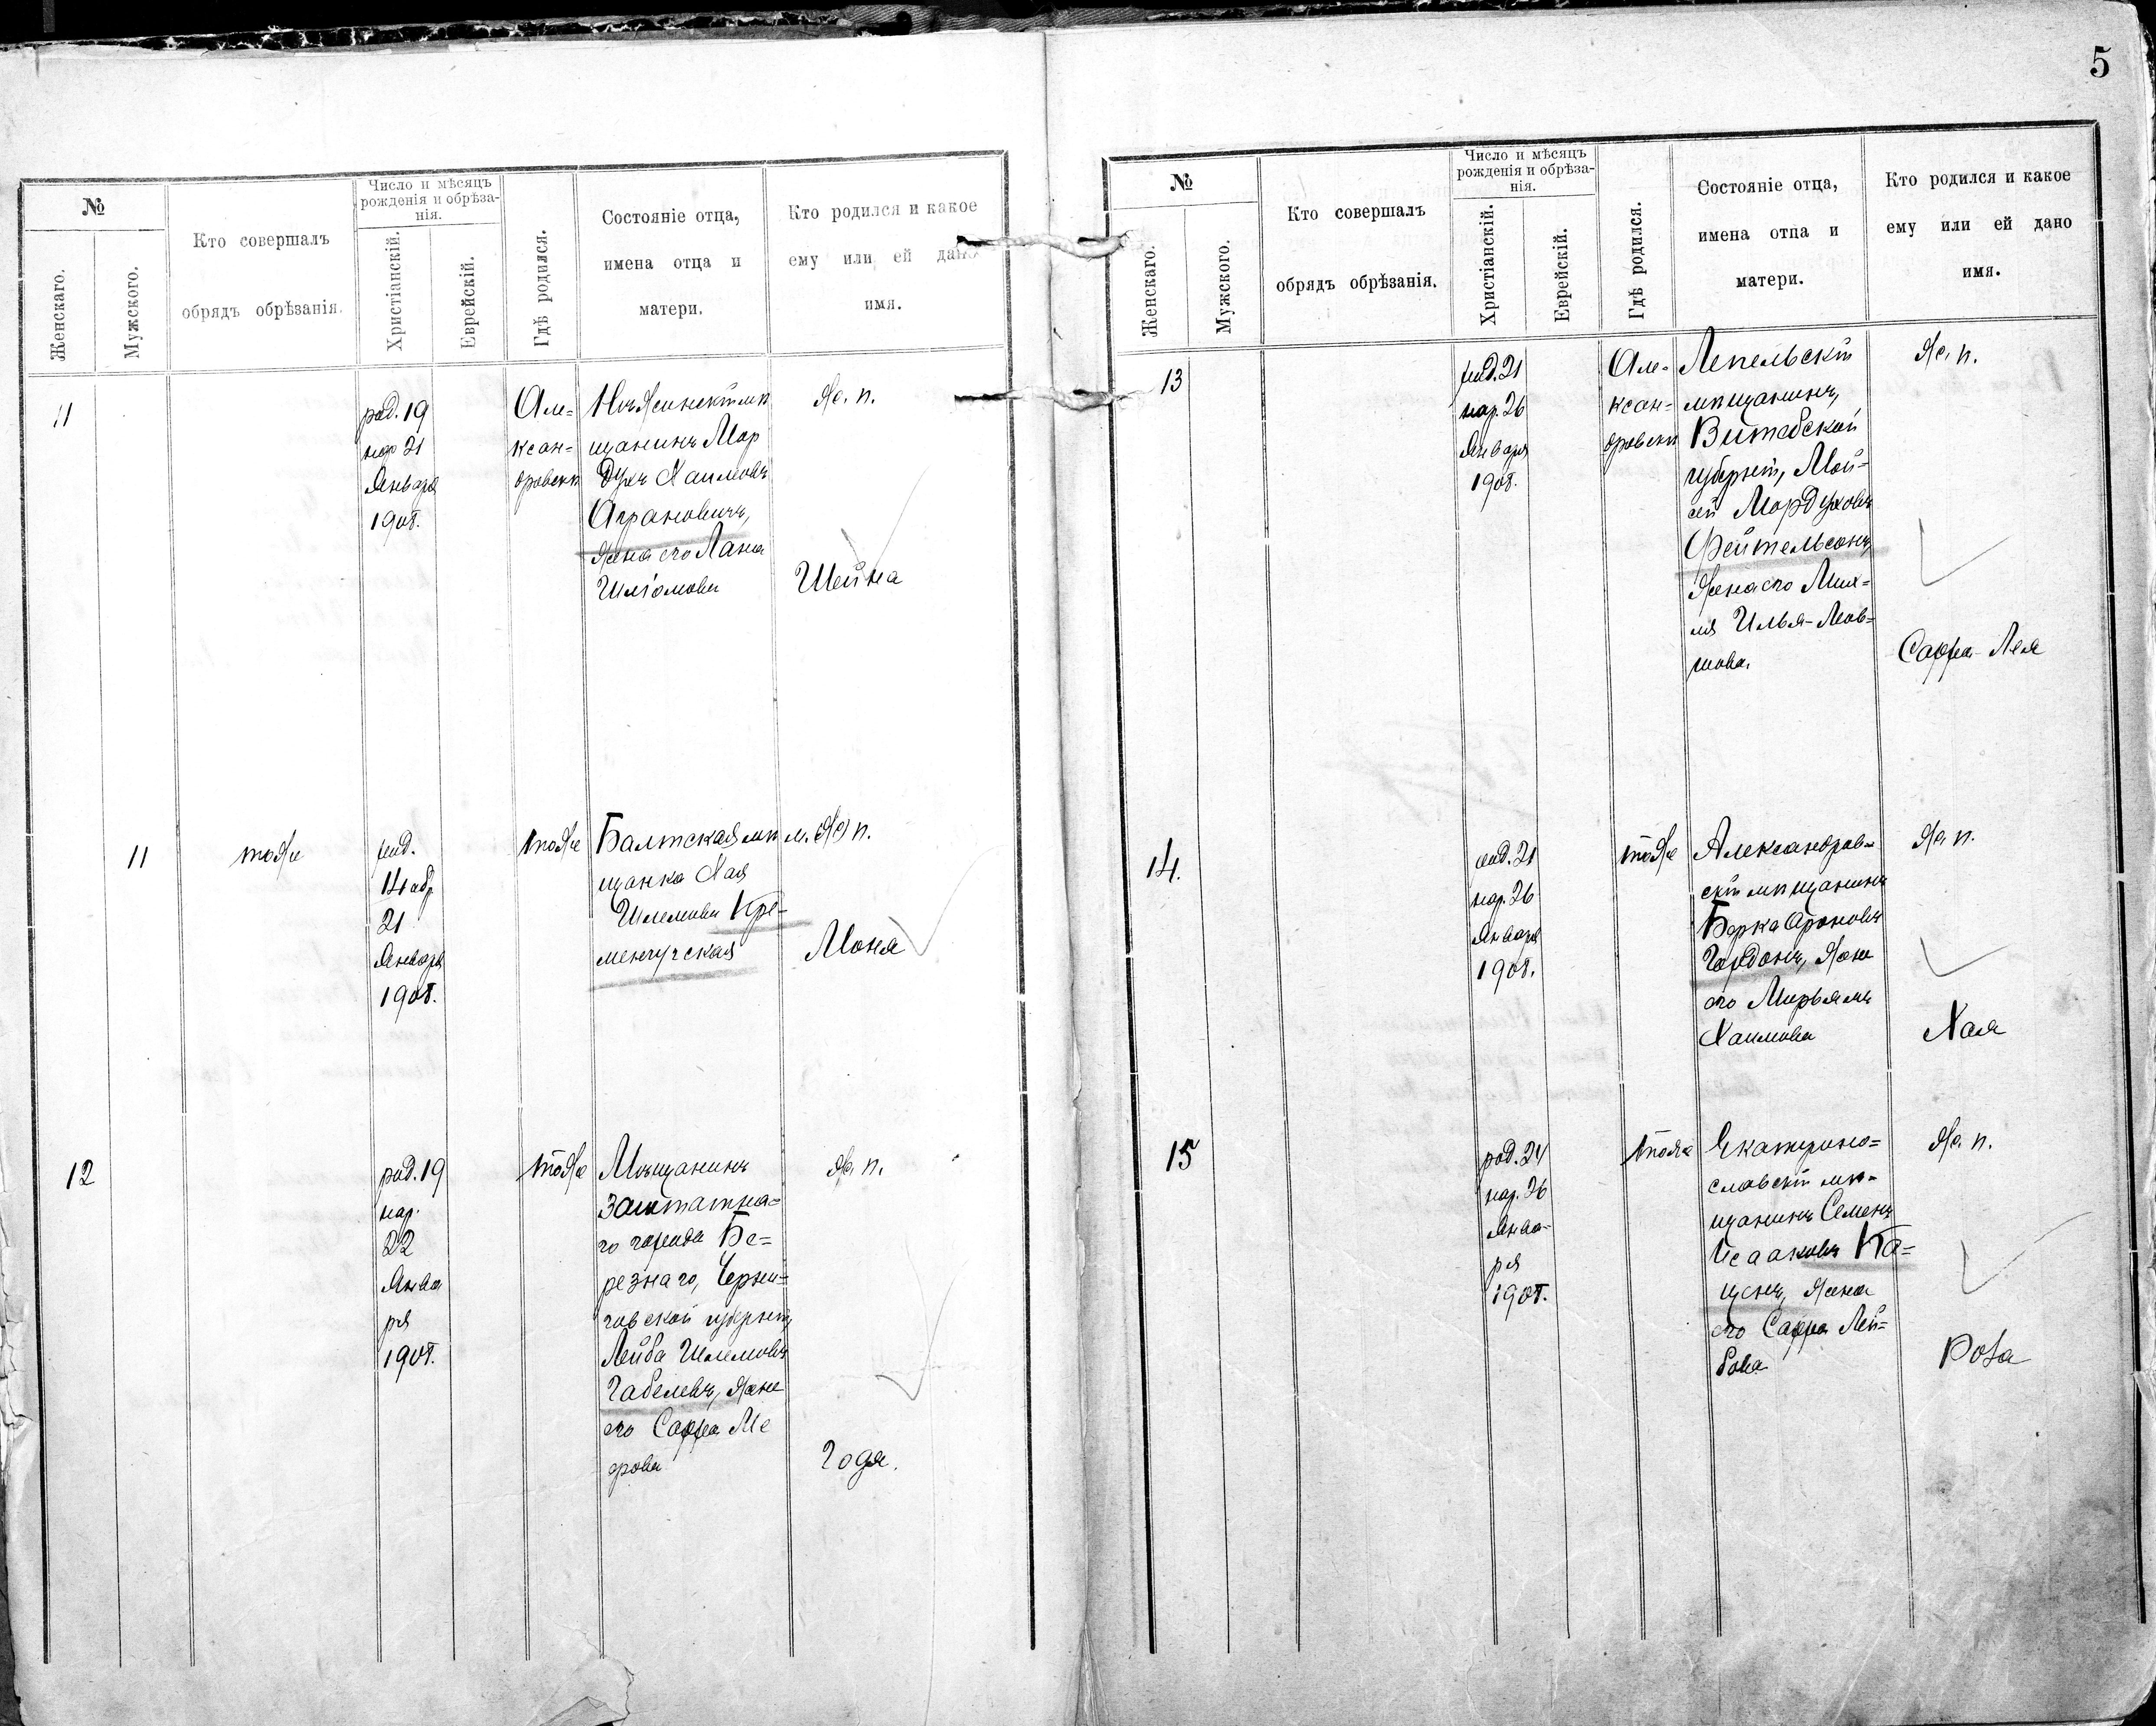 5
№
Женскаго.
Мужского.
Кто совершалъ
обрядъ обрѣзанія.
Число и мѣсяцъ
рожденія и обрѣза-
нія.
Христіанскій.
Еврейскій.
Гдѣ родился.
Состояніе отца,
имена отца и
матери.
Кто родился и какое
ему или ей дано
имя.
11
род. 19
нар 21
Января
1908.
Але=
ксан=
дровскѣ
щанинъ Мор
духъ Хаимовъ
Аграновичъ,
жена его
Шліомова
ж. п.
Шейна
11
тоже
14 обр
21
Января
1908.
тоже
Балтская мѣ
щанка Хая
Шлемова Кре-
менчугская
м. п.
Моня
12
род. 19
нар.
22
Янва
ря
1908.
тоже
Мѣщанинъ
заштатна=
го города Бе=
резнаго, Черни=
говской губерніи,
Лейба Шлемовъ
Габелевъ, жена
его Сарра Ме
ерова
ж. п.
Годя.
№
Женскаго.
Мужского.
Кто совершалъ
обрядъ обрѣзанія.
Число и мѣсяцъ
рожденія и обрѣза-
нія.
Христіанскій.
Еврейскій.
Гдѣ родился.
Состояніе отца,
имена отца и
матери.
Кто родился и какое
ему или ей дано
имя.
13
род. 21
нар. 26
Января
1908.
Але-
ксан=
дровскѣ
Лепельскій
мѣщанинъ,
Витебской
губерніи, Мой=
сей Мордуховъ
Фейтельсонъ,
жена его Мих=
ля Илья-Леов=
шова.
ж. п.
Сарра-Лея
14.
род. 21
нар. 26
Января
1908.
тоже
Александров=
скій мѣщанинъ
Берка Ароновъ
Гордонъ, жена
его Мирьямъ
Хаимова
ж. п.
Хая
15
род. 24
нар. 26
Янва-
ря
1908.
тоже
Екатерино=
славскій мѣ-
щанинъ Семенъ
Исааковъ Ка=
ценъ, жена
его Сарра Лей=
бова
ж. п.
Роза